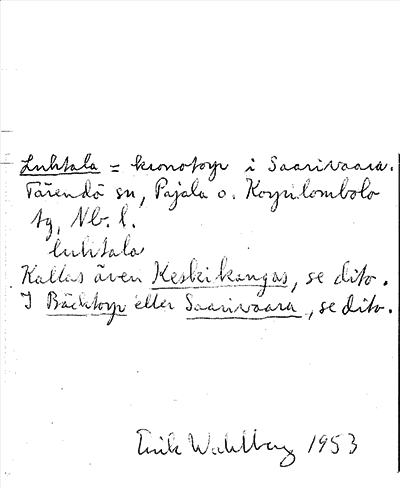 Luhtala = kronotorp i Saarivaara.
Tärendö sn, Pajala o. Korpilombolo
tg, Nb. l.
luhtala
Kallas även Keskikangas, se dito.
I Bäcktorp eller Saarivaara, se dito.
Erik Wahlberg 1953